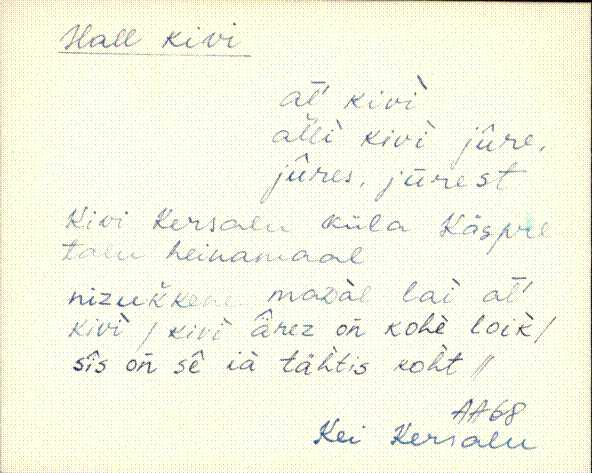 Hall kivi
āl' kivì
ălli kivì jûre,
jûres, jūrest
Kivi Kersalu küla Käspre
talu heinamaal
nizukkene madàl lai āl'
kivì / kivì ârez oñ kohè loìk /
sîs oñ sê ià tähtis koht //
AA68
Kei Kersalu